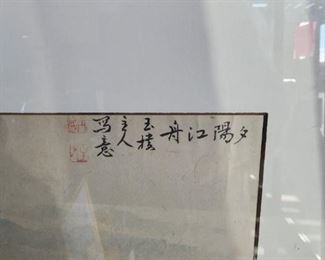 夕陽江舟
玉楼
主人
写意